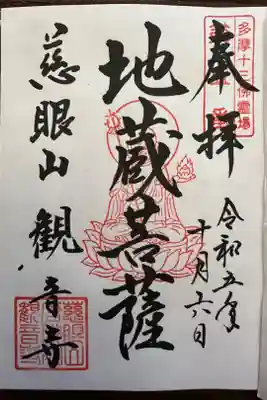 多摩十三佛霊場
奉拝
令和五年
十月十六日
地蔵菩薩
慈眼山 観音寺